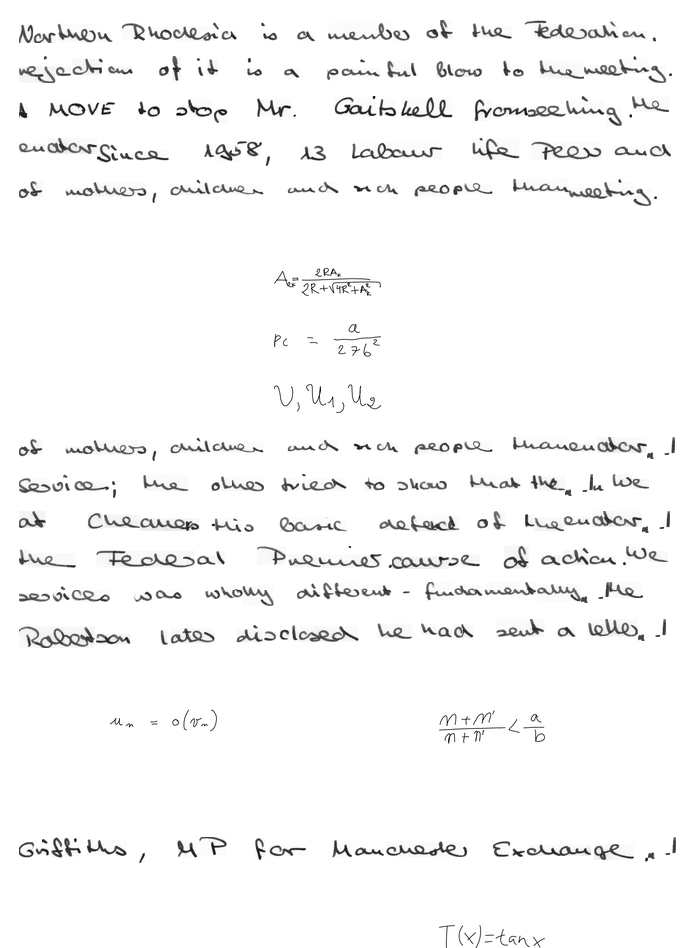 Northern Rhodesia is a member of the Federation.
rejection of it is a painful blow to the meeting.
A MOVE to stop Mr. Gaitskell from seeking. The
Since 1958, 13 Labour life Peers and
of mothers, children and sick people than meeting.
A_{ex} = \frac{2RA_n}{2R+\sqrt{4R^2+A_n^2}}
p_c = \frac{a}{27b^2}
U, U_1, U_2
of mothers, children and sick people than
Service; the other tried to show that the In We
at Chequers this basic defect of the
the Federal Premier. course of action. We
services was wholly different - fundamentally, the
Robertson later disclosed he had sent a letter
u_n = o(v_n)
\frac{m+m'}{n+n'} < \frac{a}{b}
Griffiths, MP for Manchester Exchange
T(x)=tan x